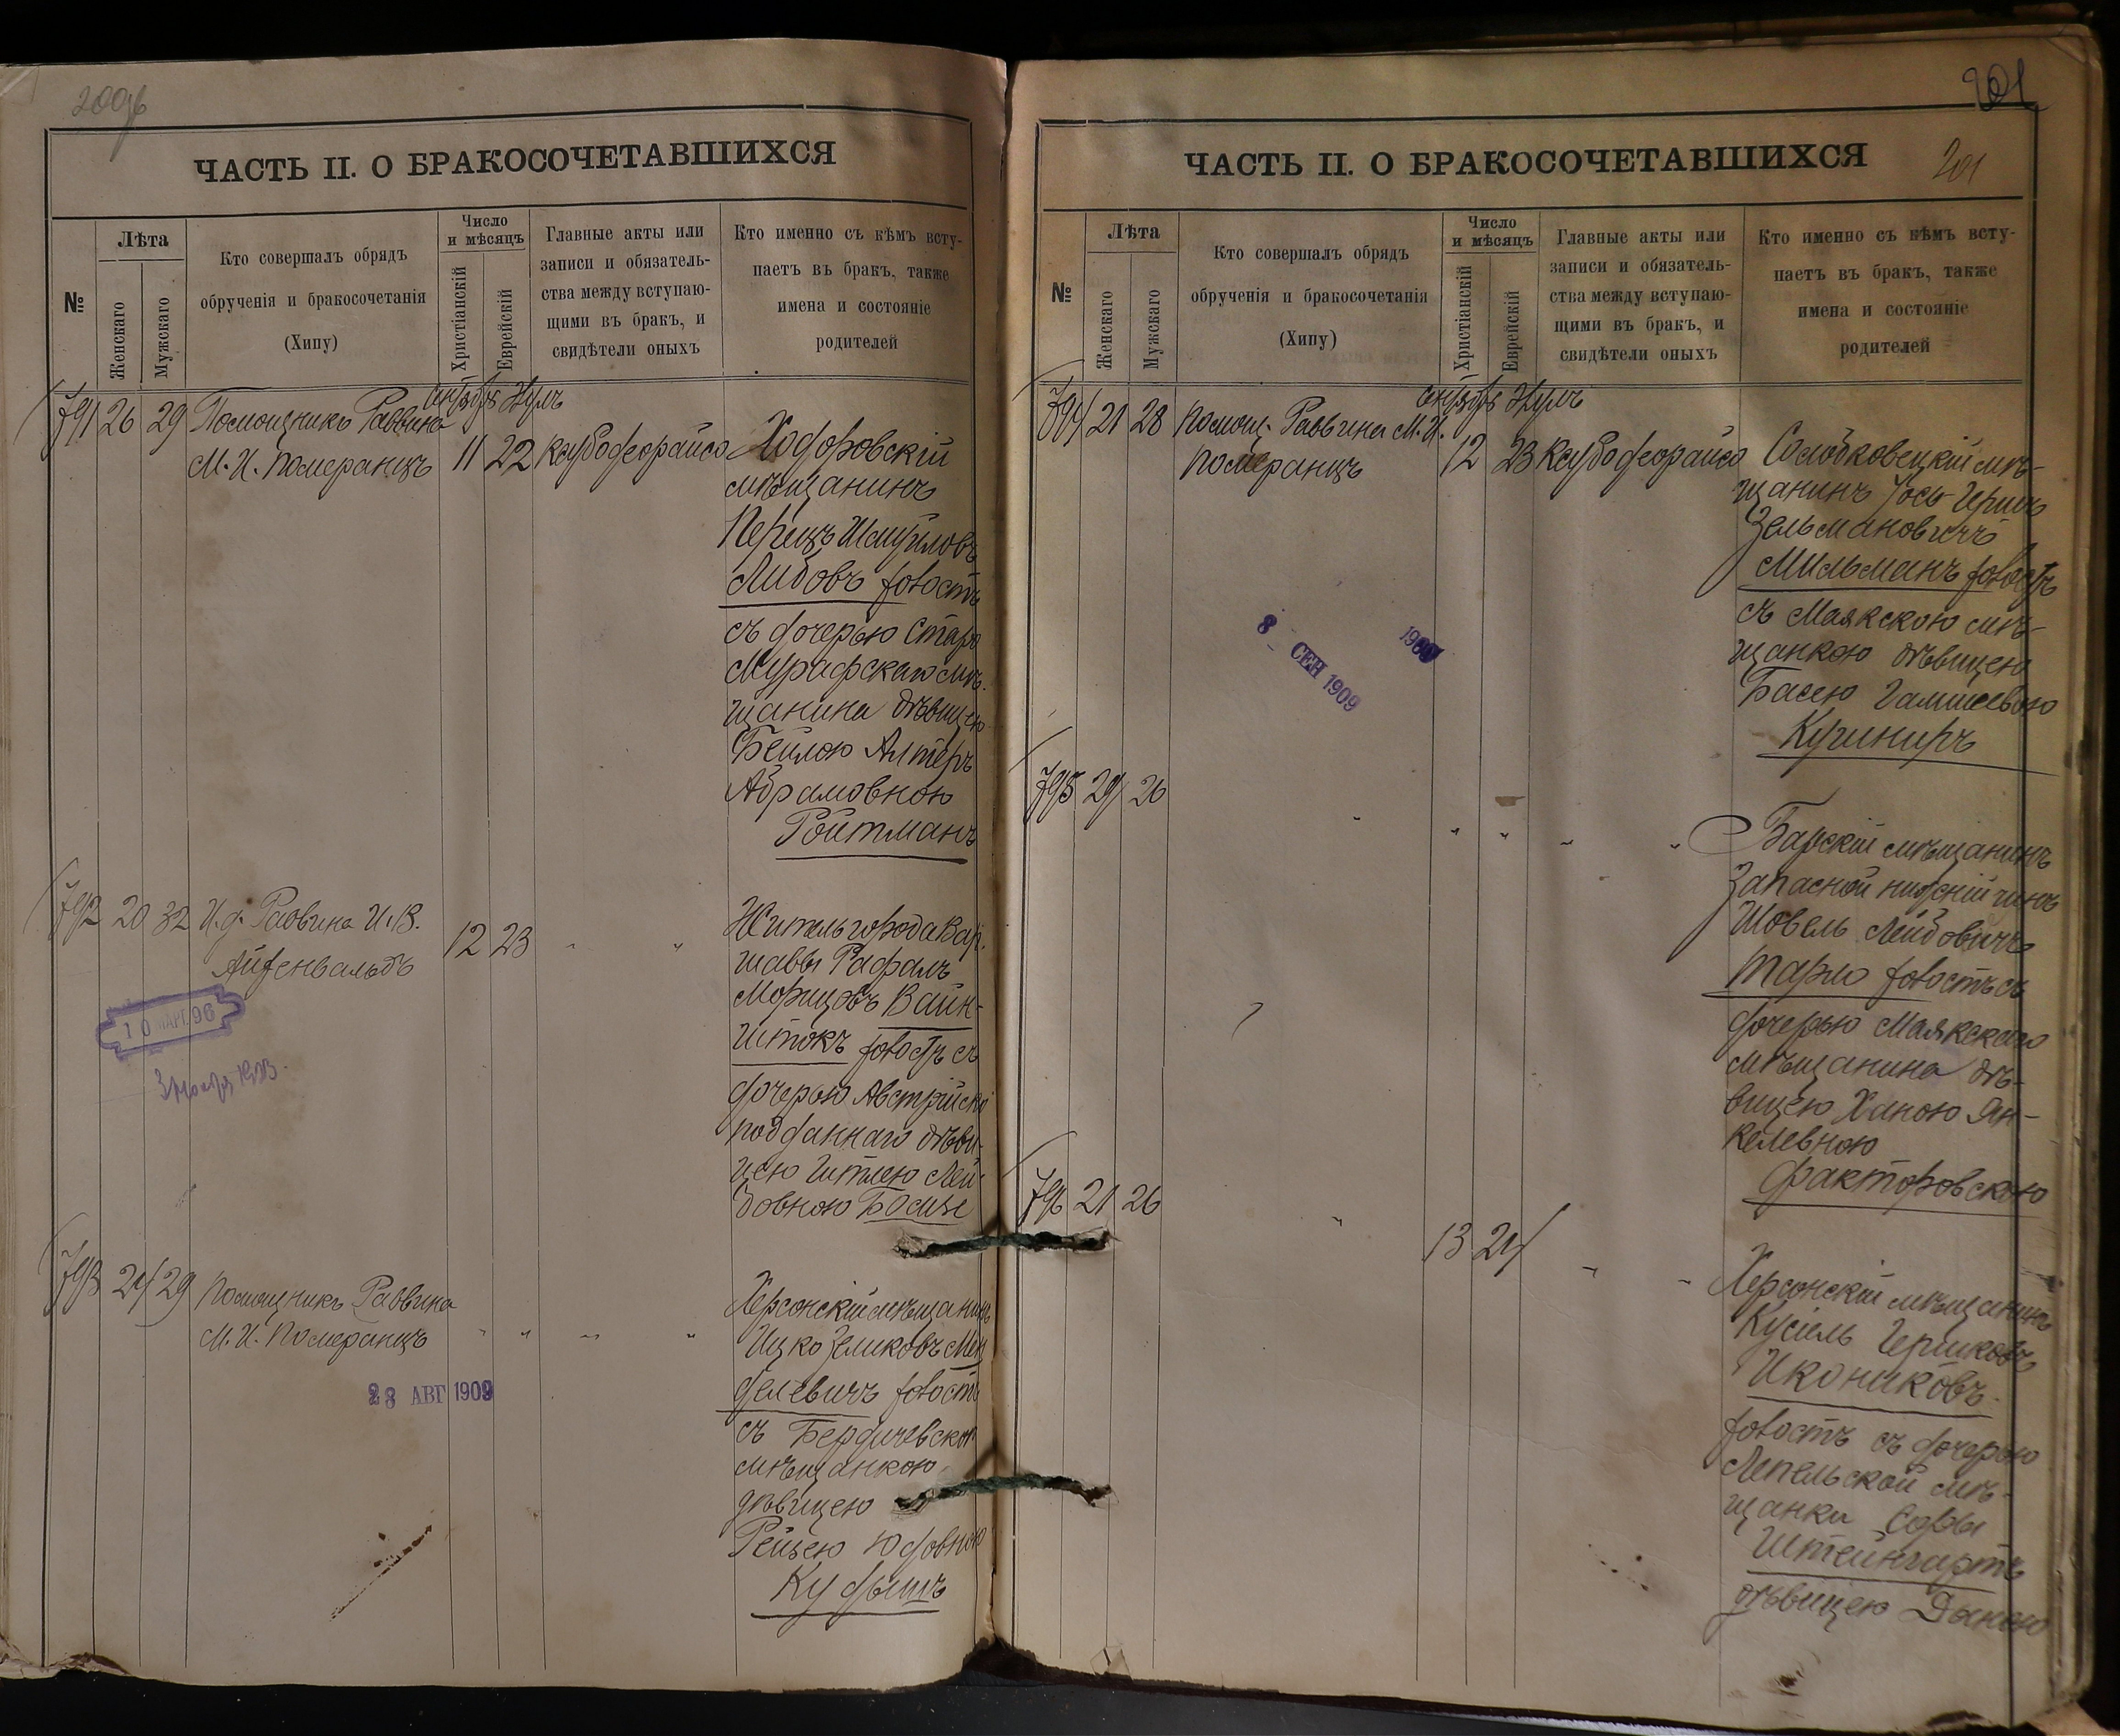 200об
ЧАСТЬ II. О БРАКОСОЧЕТАВШИХСЯ
№
Лѣта
Женскаго
Мужскаго
Кто совершалъ обрядъ
обрученія и бракосочетанія
(Хипу)
Число
и мѣсяцъ
Христіанскій
Еврейскій
Главные акты или
записи и обязатель-
ства между вступаю-
щими въ бракъ, и
свидѣтели оныхъ
Кто именно съ кѣмъ всту-
паетъ въ бракъ, также
имена и состояніе
родителей
791 26 29 Помощникъ Раввина
М. И. Померанцъ 11 22
Ходоровскій
мѣщанинъ
Перецъ Шмуйловъ
Либовъ холостъ
съ дочерью Старо
Мурафскаго мѣ-
щанина дѣвицею
Бейлою Алтеръ
Абрамовною
Ройтманъ
792 20 32 И. д. Раввина И. В.
Айзенвальдъ
12 23 " "
10 МАРТ 96
Житель города Вар-
шавы Рафалъ
Морицовъ Вайн-
штокъ холостъ съ
дочерью Австрійск
подданнаго дѣви-
цею Итлею Лей-
бовною
793 24 29 Помощникъ Раввина
М. И. Померанцъ " " " "
28 АВГ 1909
Херсонскій мѣщанинъ
Ицко Зеликовъ Мен
делевичъ холостъ
съ Бердичевскою
мѣщанкою
дѣвицею
Рейзею Юдовною
Кудышъ
201
ЧАСТЬ II. О БРАКОСОЧЕТАВШИХСЯ
201
№
Лѣта
Женскаго
Мужскаго
Кто совершалъ обрядъ
обрученія и бракосочетанія
(Хипу)
Число
и мѣсяцъ
Христіанскій
Еврейскій
Главные акты или
записи и обязатель-
ства между вступаю-
щими въ бракъ, и
свидѣтели оныхъ
Кто именно съ кѣмъ всту-
паетъ въ бракъ, также
имена и состояніе
родителей
794 21 28 Помощ. Раввина М. И.
Померанцъ 12 23
8 СЕН 1909
Солобковецкій мѣ-
щанинъ Іось Гершъ
Зельмановичъ
Мильманъ холостъ
съ Маякскою мѣ-
щанкою дѣвицею
Басею
Кушниръ
795 24 26
" " " " "
Барскій мѣщанинъ
Запасной нижній чинъ
Шовель Лейбовичъ
Тарло холостъ съ
дочерью Маякскаго
мѣщанина дѣ-
вицею Ханою Ян-
келевною
Факторовскою
796 21 26
" 13 24 " "
Херсонскій мѣщанинъ
Кусіель Гершковъ
Икониковъ
холостъ съ дочерью
Лепельской мѣ-
щанки Соры
Штейнгартъ
дѣвицею